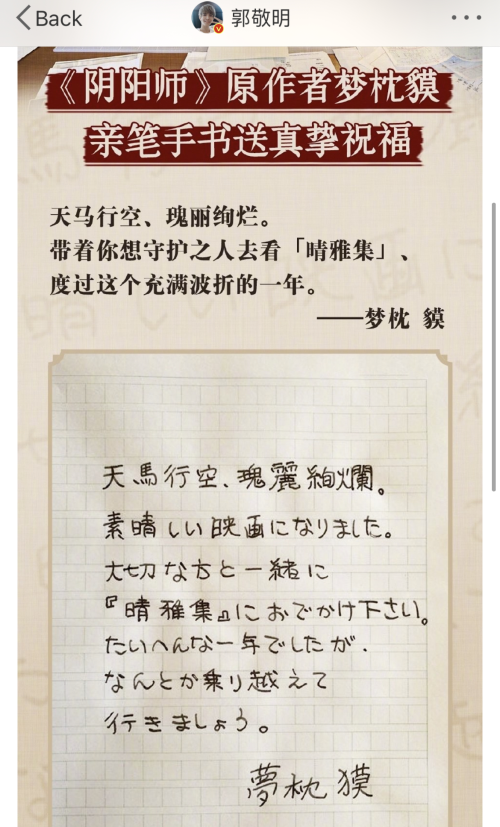 Back
郭敬明
《阴阳师》原作者梦枕貘
亲笔手书送真挚祝福
天马行空、瑰丽绚烂。
带着你想守护之人去看「晴雅集」、
度过这个充满波折的一年。
——梦枕 貘
天馬行空、瑰麗絢爛。
素晴しい映画になりました。
大切な方と一緒に
『晴雅集』におでかけ下さい。
たいへんな一年でしたが、
なんとか乗り越えて
行きましょう。
夢枕獏